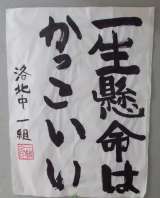 一生懸命は
かっこいい
洛北中一組